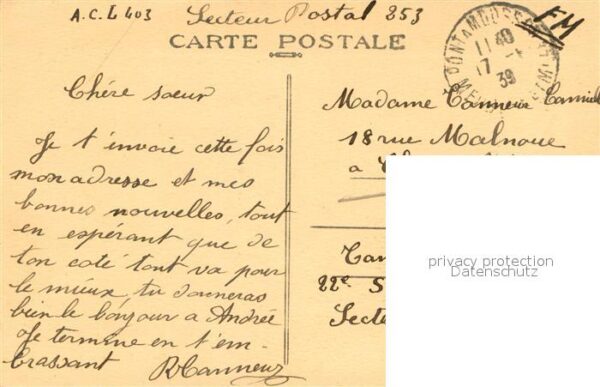 A.C.L 403 Secteur Postal 253
FM
CARTE POSTALE
PONT A MOUSSON
11 40
17
39
Chére soeur
Je t'envoie cette fois
mon adresse et mes
bonnes nouvelles, tout
en espérant que de
ton coté tout va pour
le mieux, tu donneras
bien le bonjour a Andrée
Je termine en t'em-
brassant
Madame
18 rue Malnoue
a
22e S
Secte
privacy protection
Datenschutz